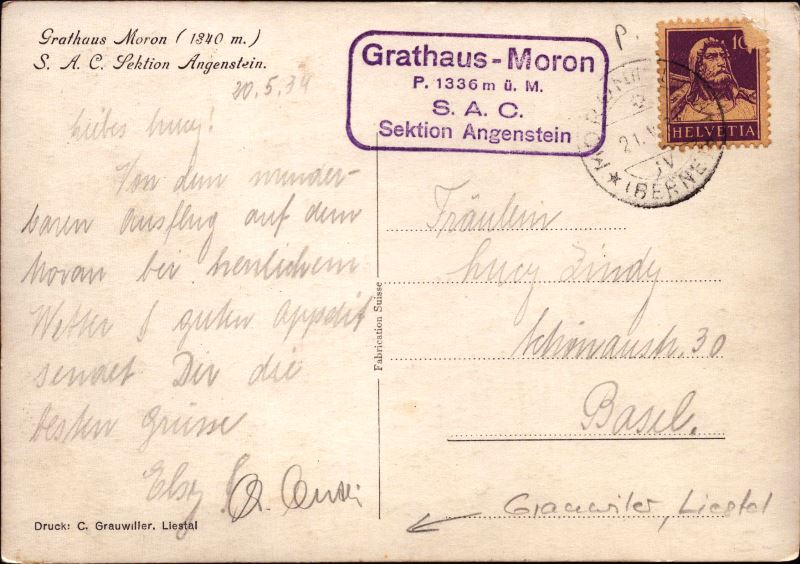 Grathaus Moron (1340 m.)
S. A. C. Sektion Angenstein.
20.5.34
Liebes Lucy!
Von dem wunder-
baren Ausflug auf dem
Moron bei herrlichem
Wetter & guten Appetit
sendet Dir die
besten Grüsse
Elsy
Druck: C. Grauwiller, Liestal
Fabrication Suisse
Grathaus-Moron
P. 1336 m ü. M.
S. A. C.
Sektion Angenstein
P.
10
HELVETIA
21.
(BERNE)
Fräulein
Lucy Lindy
Schönaustr. 30
Basel.
Grauwiler, Liestal